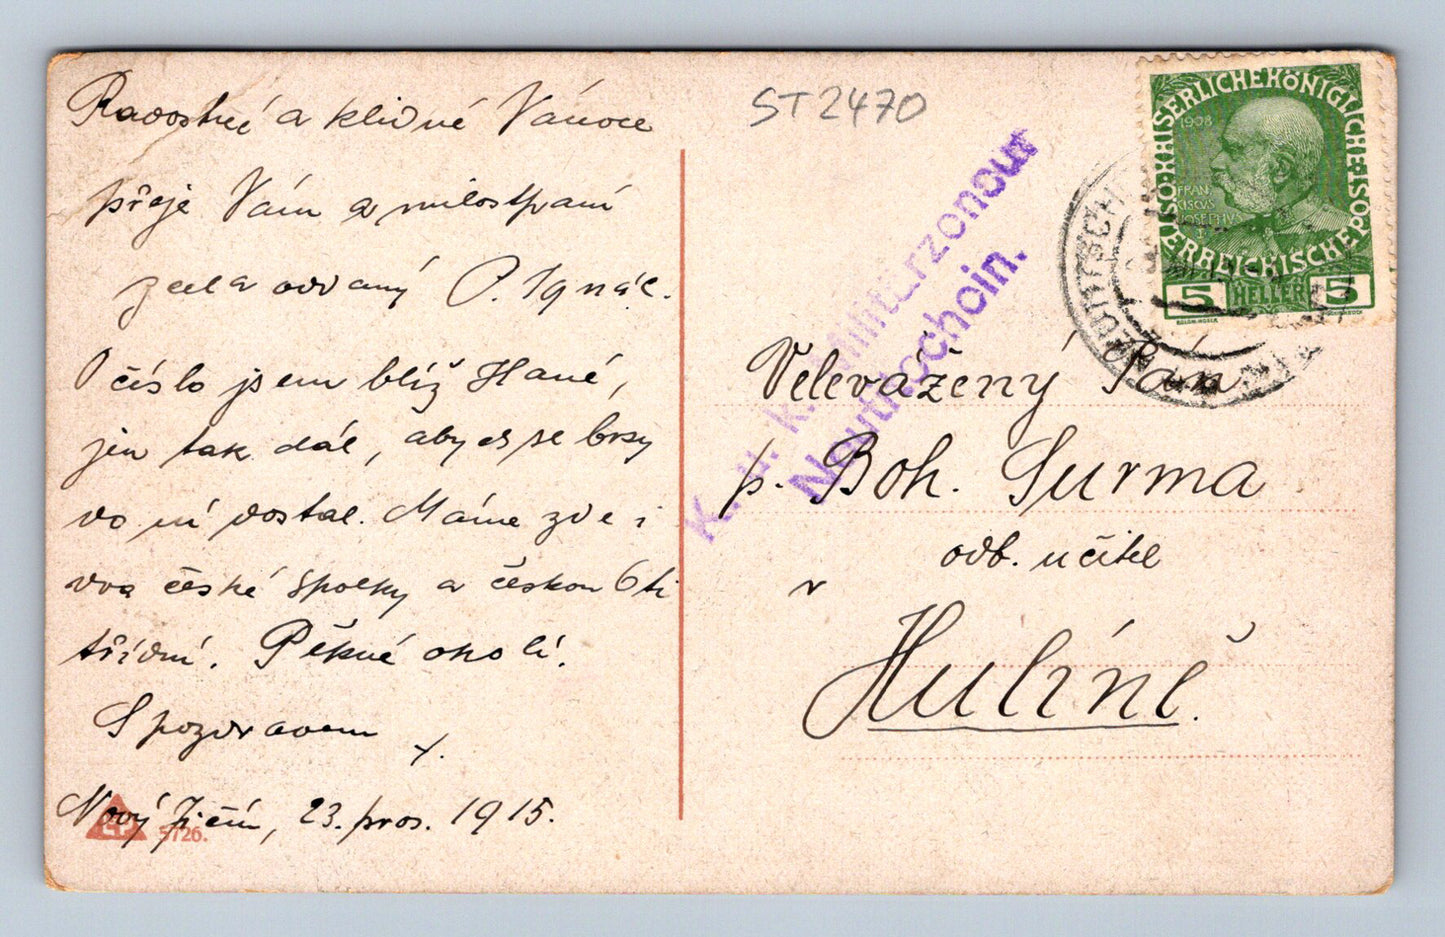 Radostné a klidné Vánoce
přeje Vám a milostpaní
zcela oddaný P. Ignác.
O číslo jsem blíž Hané,
jen tak dál, aby se brzy
do ní dostal. Máme zde i
dva české spolky a českou 6ti
třídní. Pěkné okolí.
S pozdravem
Nový Jičín, 23. pros. 1915.
5726.
ST2470
K. u. k. Militärzensur
Neutitschein.
KAISERLICHEKÖNIGLICHE
ÖSTERREICHISCHEPOST
1908
FRAN
CISCVS
IOSEPHVS
I
5 HELLER 5
Velevážený Pán
p. Boh. Surma
odb. učitel
v
Hulíně.